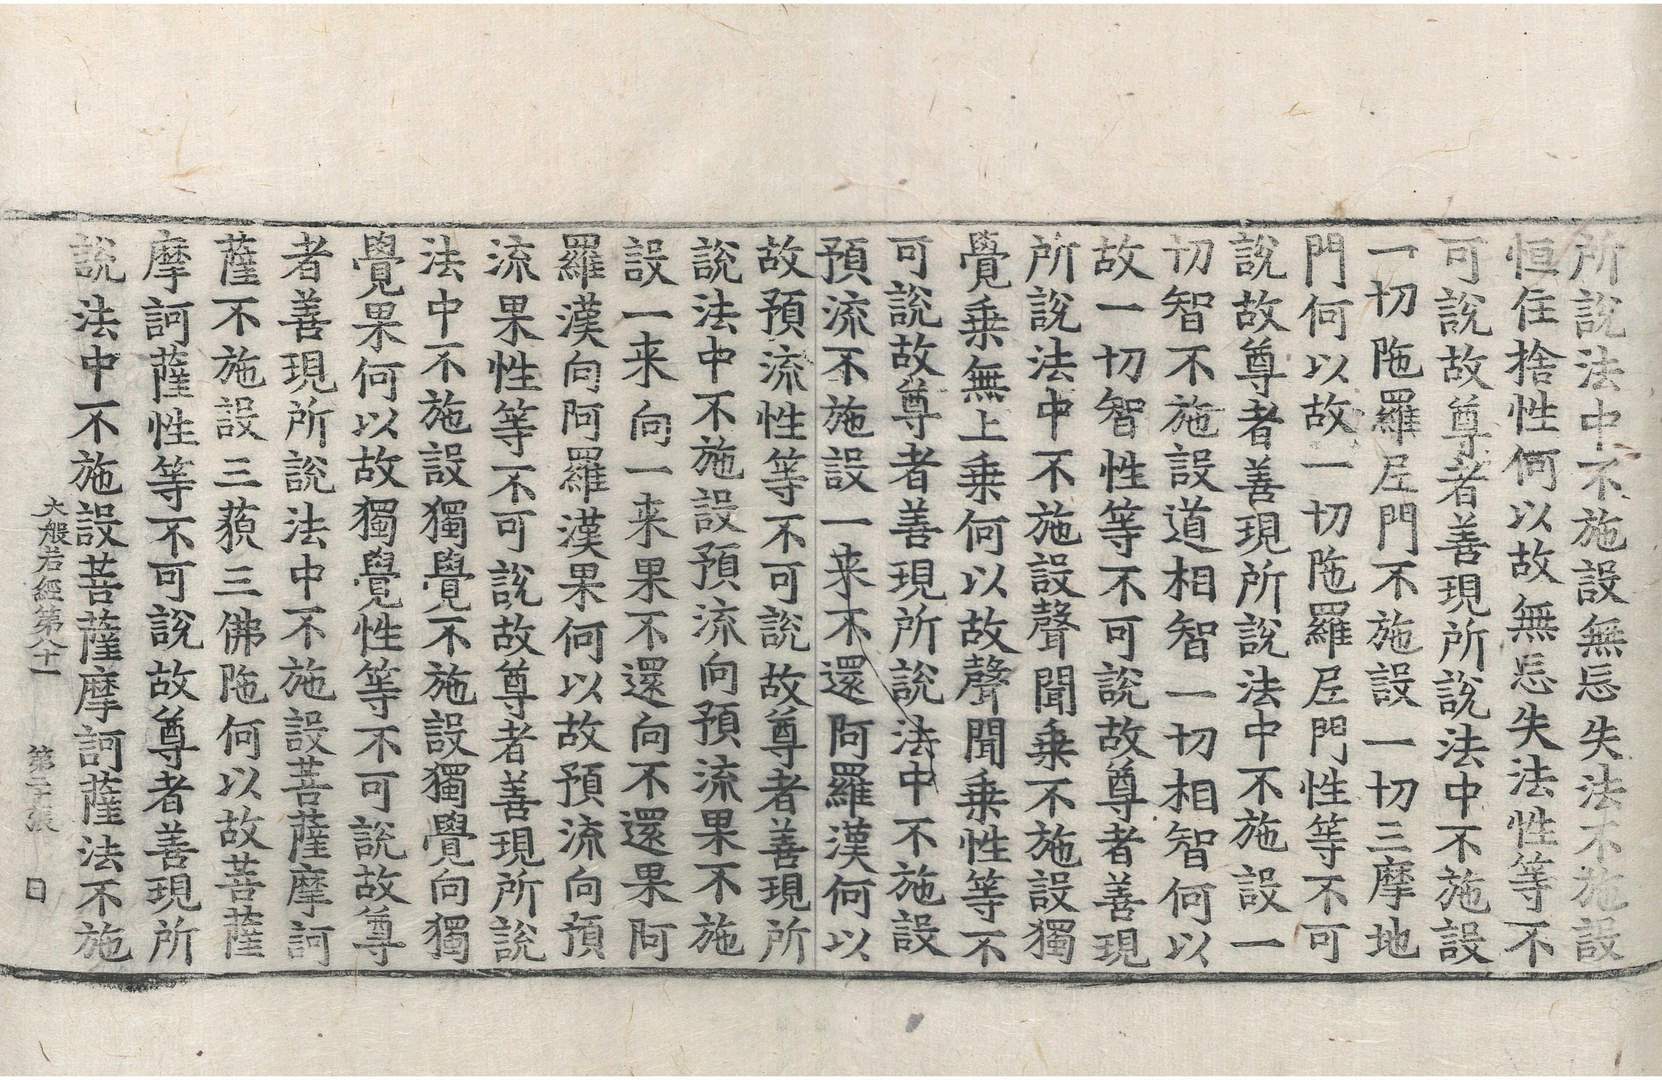 所說法中不施設無忘失法不施設
恒住捨性何以故無忘失法性等不
可說故尊者善現所說法中不施設
一切陁羅尼門不施設一切三摩地
門何以故一切陁羅尼門性等不可
說故尊者善現所說法中不施設一
切智不施設道相智一切相智何以
故一切智性等不可說故尊者善現
所說法中不施設聲聞乘不施設獨
覺乘無上乘何以故聲聞乘性等不
可說故尊者善現所說法中不施設
預流不施設一来不還阿羅漢何以
故預流性等不可說故尊者善現所
說法中不施設預流向預流果不施
設一来向一来果不還向不還果阿
羅漢向阿羅漢果何以故預流向預
流果性等不可說故尊者善現所說
法中不施設獨覺不施設獨覺向獨
覺果何以故獨覺性等不可說故尊
者善現所說法中不施設菩薩摩訶
薩不施設三藐三佛陁何以故菩薩
摩訶薩性等不可說故尊者善現所
說法中不施設菩薩摩訶薩法不施
大般若經第八十一 第 張 日